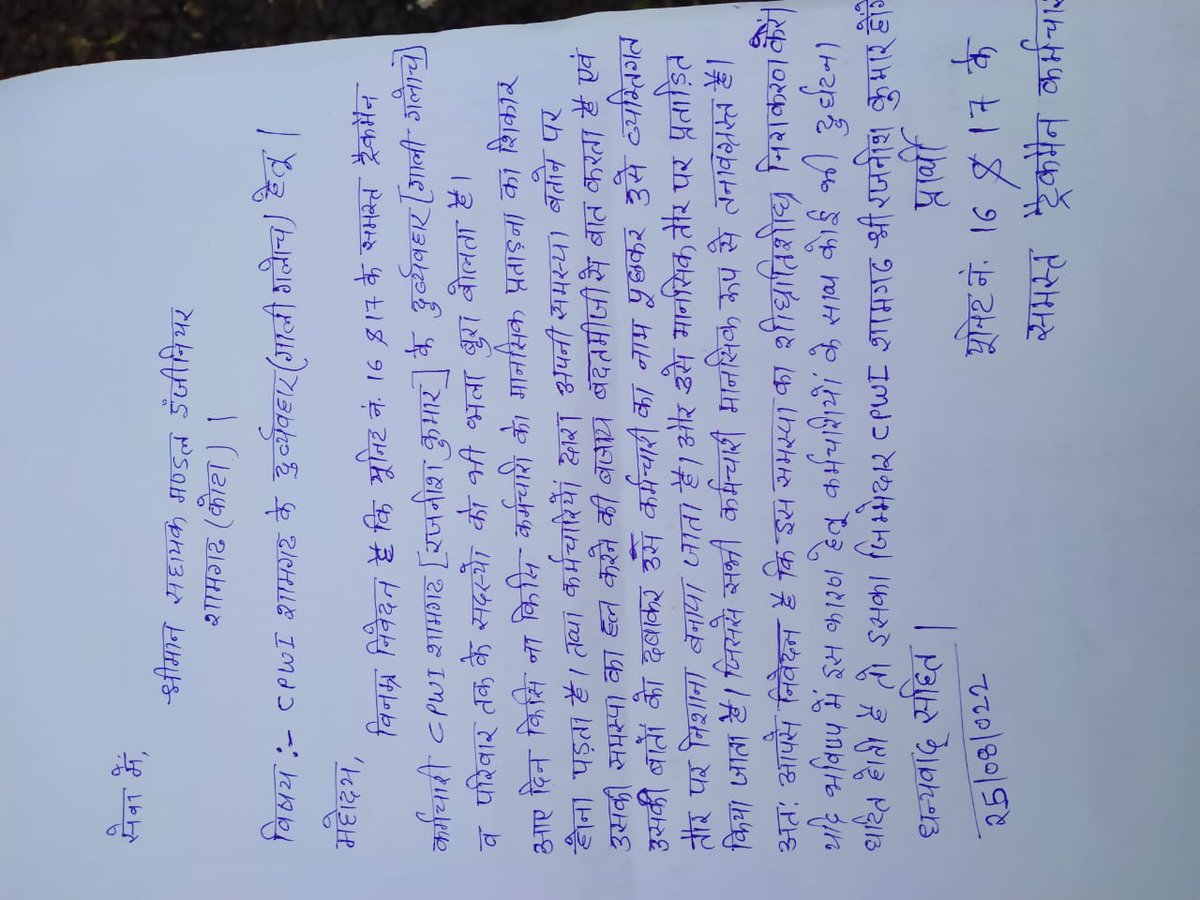 सेवा में,
श्रीमान सहायक मण्डल इंजीनियर
शामगढ (कोटा) |
विषय :- CPWI शामगढ के दुर्व्यवहार (गाली गलोच) हेतू |
महोदय,
विनम्र निवेदन है कि यूनिट नं. 16 & 17 के समस्त ट्रैकमैन
कर्मचारी CPWI शामगढ [रजनीश कुमार] के दुर्व्यवहार [गाली गलोच]
व परिवार तक के सदस्यो को भी भला बुरा बोलता है।
आए दिन किसि ना किसि कर्मचारी को मानसिक प्रताड़ना का शिकार
होना पड़ता है। तथा कर्मचारियों द्वारा अपनी समस्या बताने पर
उसकी समस्या का हल करने की बजाय बदतमीजी से बात करता है एवं
उसकी बातों को दबाकर उस कर्मचारी का नाम पुछकर उसे व्यक्तिगत
तौर पर निशाना बनाया जाता है। और उसे मानसिक तौर पर प्रताड़ित
किया जाता है। जिससे सभी कर्मचारी मानसिक रूप से तनावग्रस्त है।
अतः आपसे निवेदन है कि इस समस्या का शीघ्रातिशीघ्र निराकरण करें।
यदि भविष्य में इस कारण हेतू कर्मचारियों के साथ कोई भी दुर्घटना
घटित होती है तो इसका जिम्मेदार CPWI शामगढ श्री रजनीश कुमार होंगे
धन्यवाद सहित |
25/08/022
प्रार्थी
यूनिट नं. 16 & 17 के
समस्त ट्रैकमैन कर्मचार